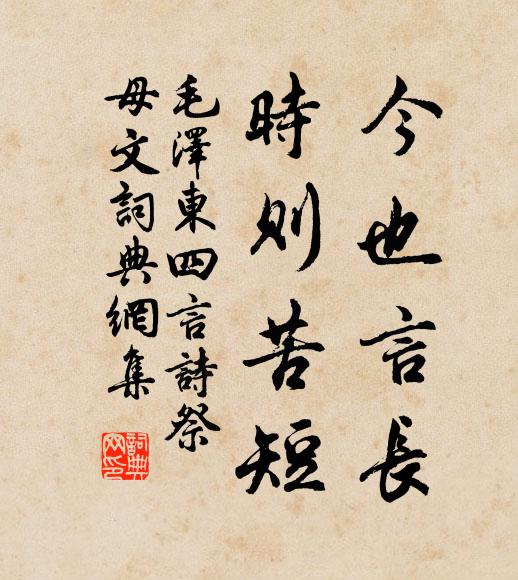 今也言長
時則苦短
毛澤東四言詩祭
母文詞典網集
詞典网印